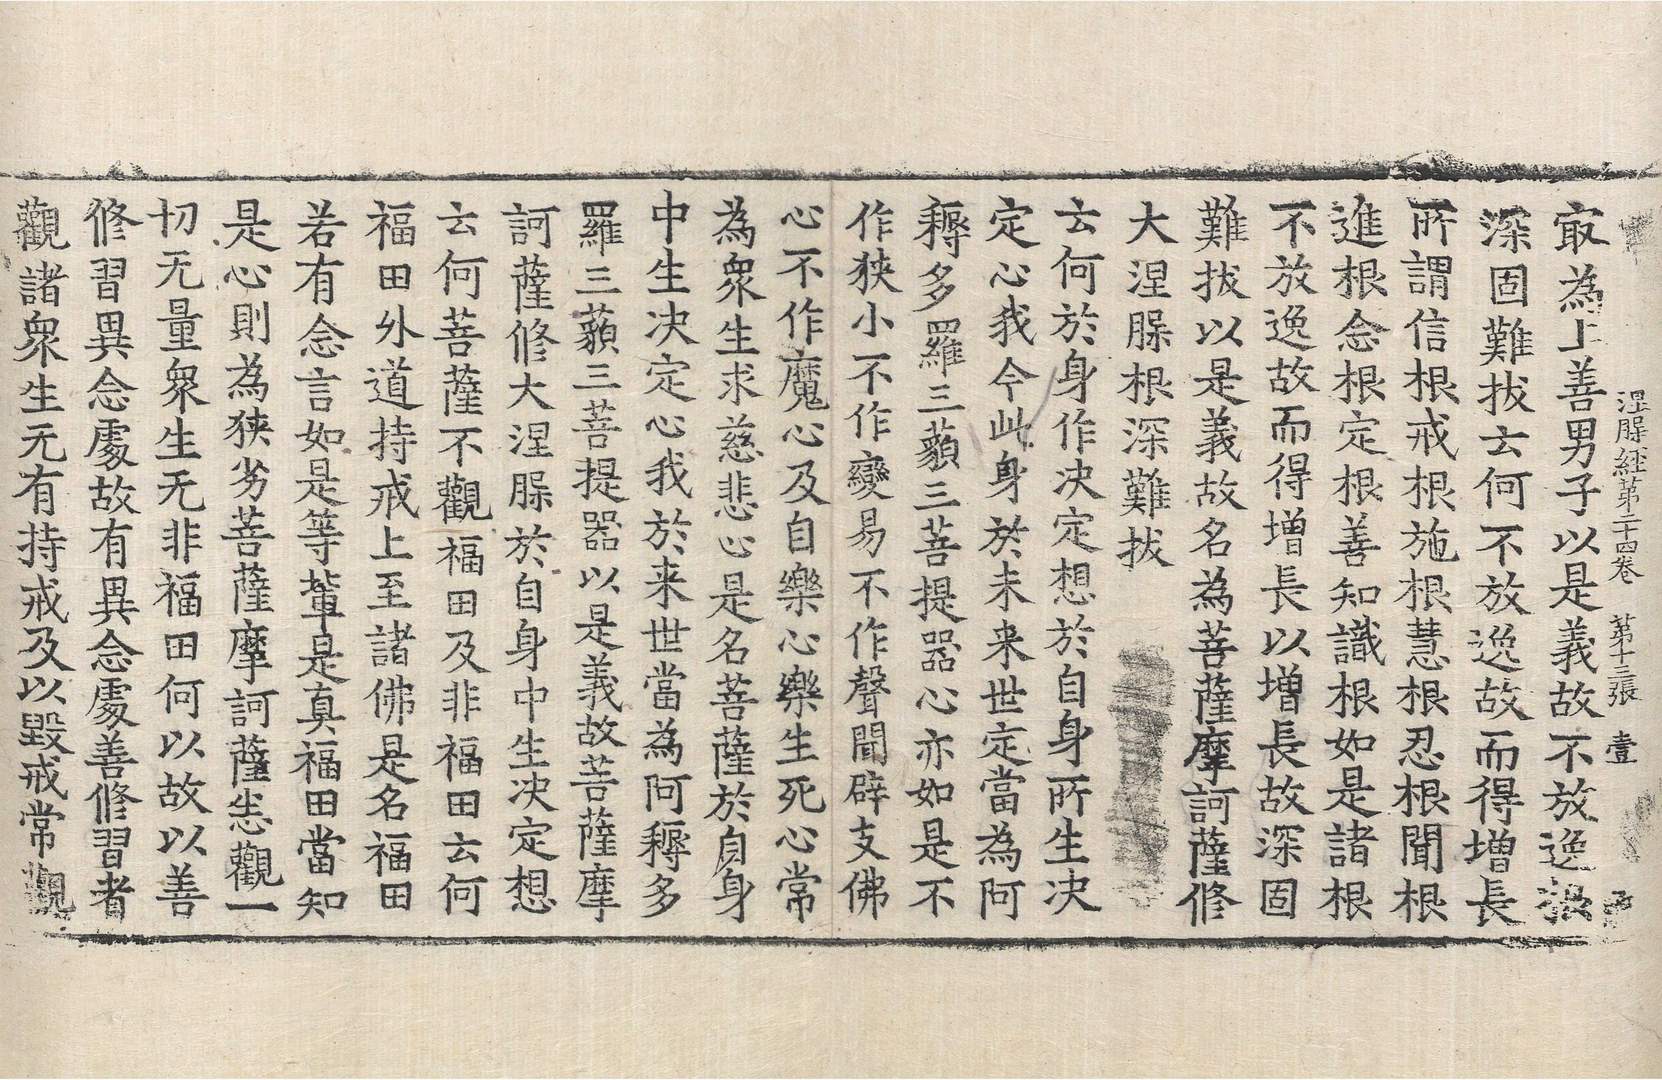 涅槃經第二十四卷 第十三張 壹
㝡為上善男子以是義故不放逸根
深固難拔云何不放逸故而得增長
所謂信根戒根施根慧根忍根聞根
進根念根定根善知識根如是諸根
不放逸故而得增長以增長故深固
難拔以是義故名為菩薩摩訶薩修
大涅槃根深難拔
云何於身作决定想於自身所生决
定心我今此身於未来世定當為阿
耨多羅三藐三菩提器心亦如是不
作狹小不作變易不作聲聞辟支佛
心不作魔心及自樂心樂生死心常
為衆生求慈悲心是名菩薩於自身
中生决定心我於来世當為阿耨多
羅三藐三菩提器以是義故菩薩摩
訶薩修大涅槃於自身中生决定想
云何菩薩不觀福田及非福田云何
福田外道持戒上至諸佛是名福田
若有念言如是等輩是真福田當知
是心則為狹劣菩薩摩訶薩悉觀一
切无量衆生无非福田何以故以善
修習異念處故有異念處善修習者
觀諸衆生无有持戒及以毀戒常觀